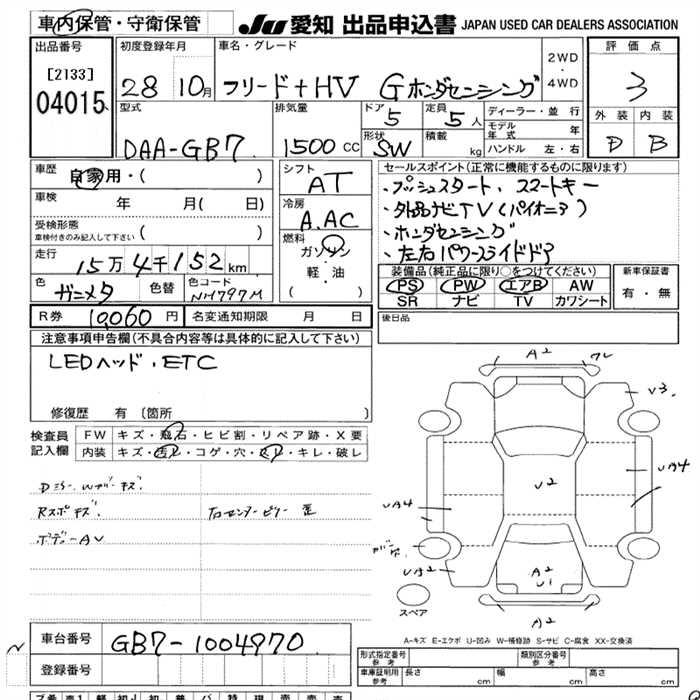 車内保管・守衛保管
JU 愛知 出品申込書 JAPAN USED CAR DEALERS ASSOCIATION
出品番号 [2133] 04015
初度登録年月 28 10月
車名・グレード フリード+HV Gホンダセンシング
2WD・4WD
評価点 3
外装 D 内装 B
型式 DAA-GB7
排気量 1500 CC
ドア 5 定員 5人
形状 SW 積載 kg
ディーラー・並行
モデル年式 年
ハンドル 左・右
車歴 自家用・( )
車検 年 月( 日)
受検形態
車検付きのみ記入して下さい ( )
走行 15万4千152km
色 ガンメタ 色替 色コード NH797M
シフト AT
冷房 A.AC
燃料 ガソリン
軽・油
( )
セールスポイント(正常に機能するものに限ります)
・プッシュスタート、スマートキー
・外品ナビTV(パイオニア)
・ホンダセンシング
・左右パワースライドドア
装備品(純正品に限り○をつけてください)
PS PW エアB AW
SR ナビ TV カワシート
新車保証書
有・無
R券 10060円 名変通知期限 月 日
後日品
注意事項申告欄(不具合内容等は具体的に記入して下さい)
LEDヘッド・ETC
修復歴 有〔箇所 〕
検査員記入欄
FW キズ・飛石・ヒビ割・リペア跡・X要
内装 キズ・汚レ・コゲ・穴・スレ・キレ・破レ
Dミラー、Wガバーキズ.
Rスポキズ. 左センターピラー 歪
ボデーAV
A2 ワレ
V3.
UA4
V2
UA4
UA2
A2
U1
A2
スペア
A-キズ E-エクボ U-凹み W-補修跡 S-サビ C-腐食 XX-交換済
車台番号 GB7-1004970
登録番号
形式指定番号 参考 類別区分番号 参考
車庫証明用 参考 長さ cm 幅 cm 高さ cm